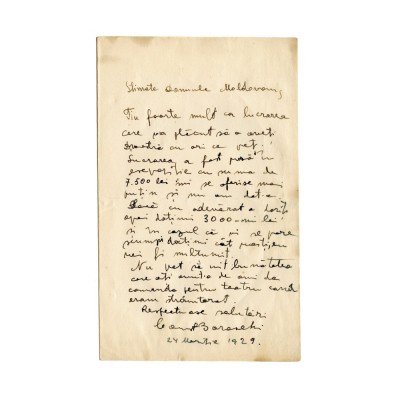 Stimate Domnule Moldovanu,
Țin foarte mult ca lucrarea
care va plăcut să o aveți
cu ori ce preț!
Lucrarea a fost pusă în
expoziție cu suma de
7.500 lei îmi se oferise mai
puțin și nu am dat-o
Dacă cu adevărat o doriți
dați-mi 3000 mi lei
și în cazul că vi se pare
scump dați-mi cât
veți fi mulțumit
Nu pot să uit bunătatea
care ați avut-o de a-mi da
comanda pentru teatru când
eram strâmtorat.
Respectuoase salutări
C. Baraschi
24 Martie 1929.